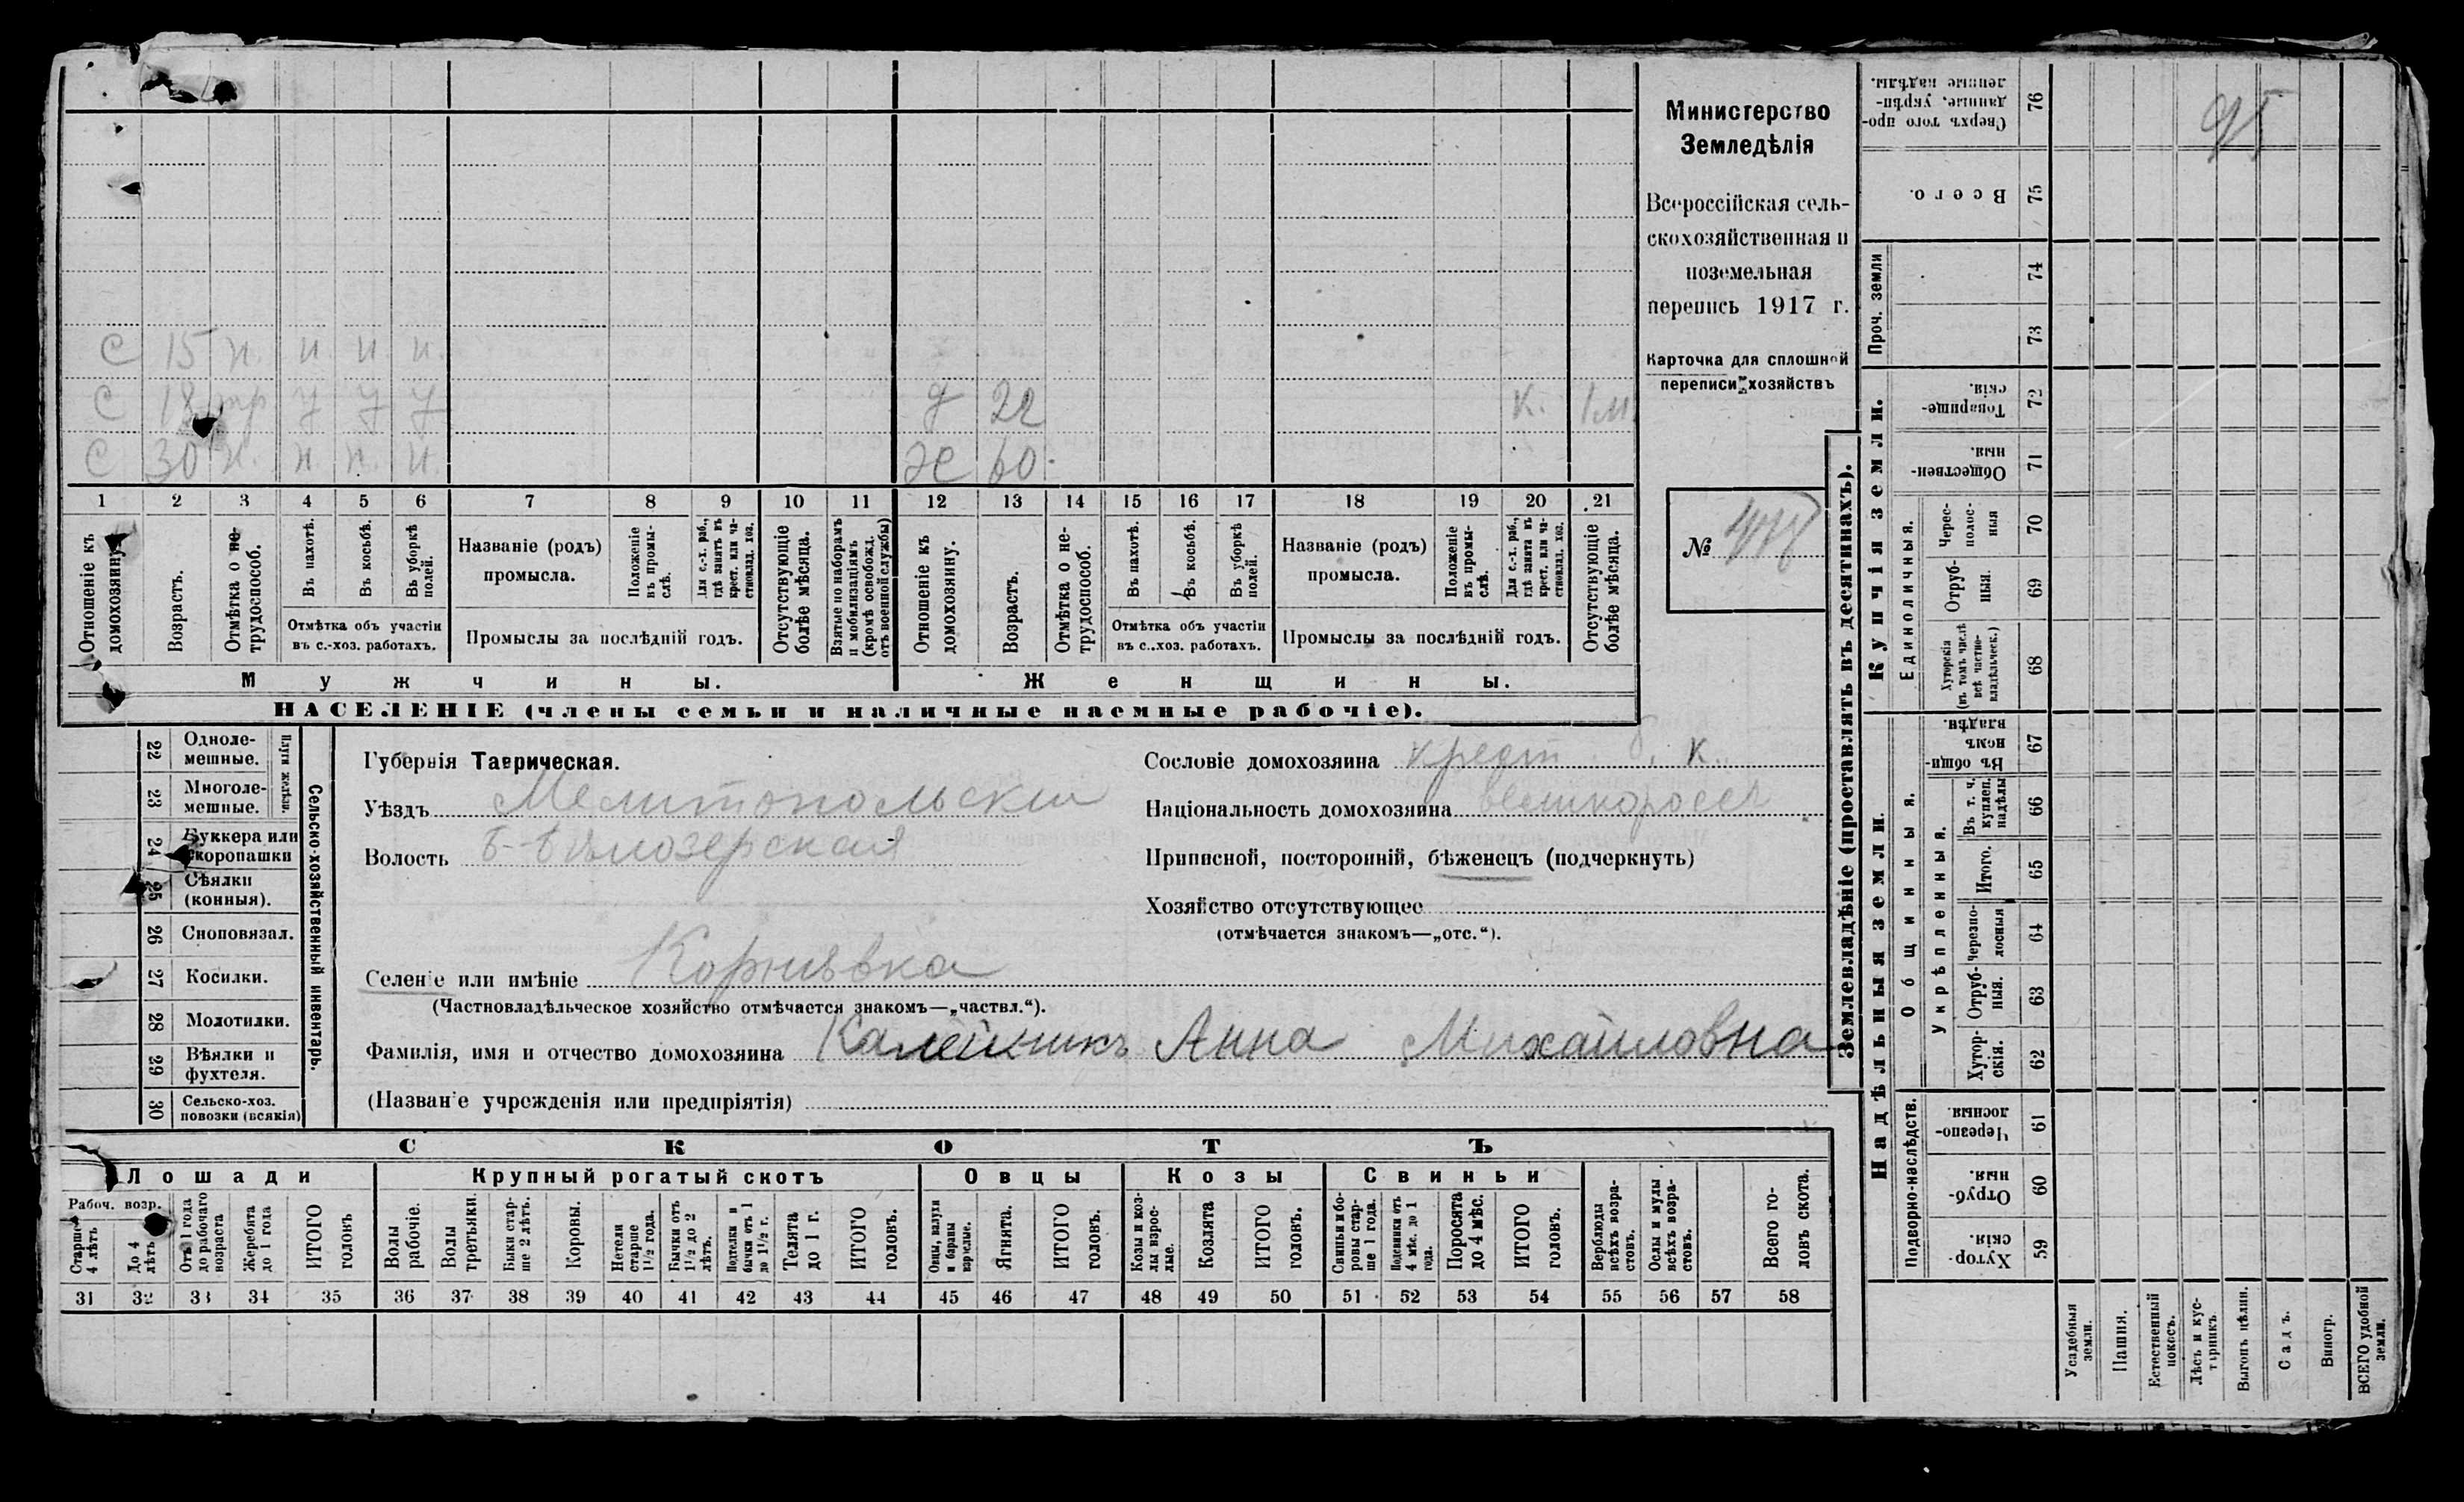 Министерство
Земледѣлія
Всероссійская сель-
скохозяйственная и
поземельная
перепись 1917 г.
Карточка для сплошной
переписи хозяйствъ
№
с 15 н. н. н. н.
с 18 тр у у у д 22 к. 1 м.
с 30 н. н н. н. ж 60.
1 2 3 4 5 6 7 8 9 10 11 12 13 14 15 16 17 18 19 20 21
Отношеніе къ домохозяину.
Возрастъ.
Отмѣтка о не-трудоспособ.
Въ пахотѣ.
Въ косьбѣ.
Въ уборкѣ полей.
Отмѣтка объ участіи
въ с.-хоз. работахъ.
Названіе (родъ)
промысла.
Положеніе въ промы-слѣ.
Для с.-х. раб., гдѣ занятъ въ крест. или ча-стновлад. хоз.
Промыслы за послѣдній годъ.
Отсутствующіе болѣе мѣсяца.
Взятые по наборамъ и мобилизаціямъ (кромѣ освобожд. отъ военной службы)
Отношеніе къ домохозяину.
Возрастъ.
Отмѣтка о не-трудоспособ.
Въ пахотѣ.
Въ косьбѣ.
Въ уборкѣ полей.
Отмѣтка объ участіи
въ с.-хоз. работахъ.
Названіе (родъ)
промысла.
Положеніе въ промы-слѣ.
Для с.-х. раб., гдѣ занята въ крест. или ча-стновлад. хоз.
Промыслы за послѣдній годъ.
Отсутствующіе болѣе мѣсяца.
Мужчины. Женщины.
НАСЕЛЕНІЕ (члены семьи и наличные наемные рабочіе).
Сельско-хозяйственный инвентарь.
Плуги желѣзн.
22 Одноле-мешные.
23 Многоле-мешные.
24 Буккера или скоропашки
25 Сѣялки (конныя).
26 Сноповязал.
27 Косилки.
28 Молотилки.
29 Вѣялки и фухтеля.
30 Сельско-хоз. повозки (всякія)
Губернія Таврическая.
Уѣздъ Мелитопольскій
Волость Б-Бѣлозерская
Селеніе или имѣніе Корнѣевка
(Частновладѣльческое хозяйство отмѣчается знакомъ—„частвл.“).
Фамилія, имя и отчество домохозяина Калейникъ Анна Михайловна
(Названіе учрежденія или предпріятія)
Сословіе домохозяина крест. к.
Національность домохозяина великороссъ
Приписной, посторонній, бѣженецъ (подчеркнуть)
Хозяйство отсутствующее
(отмѣчается знакомъ—„отс.“).
СКОТЪ
Лошади Крупный рогатый скотъ Овцы Козы Свиньи
Рабоч. возр.
Старше 4 лѣтъ
До 4 лѣтъ
Отъ 1 года до рабочаго возраста
Жеребята до 1 года
ИТОГО головъ
Волы рабочіе.
Волы третьяки.
Быки стар-ше 2 лѣтъ.
Коровы.
Нетели старше 1½ года.
Бычки отъ 1½ до 2 лѣтъ.
Подтелки и бычки отъ 1 до 1½ г.
Телята до 1 г.
ИТОГО головъ.
Овцы, валухи и бараны взрослые.
Ягнята.
ИТОГО головъ.
Козы и коз-лы взрос-лые.
Козлята
ИТОГО головъ.
Свиньи и бо-ровы стар-ше 1 года.
Подсвинки отъ 4 мѣс. до 1 года.
Поросята до 4 мѣс.
ИТОГО головъ.
Верблюды всѣхъ возра-стовъ.
Ослы и мулы всѣхъ возра-стовъ.
Всего го-ловъ скота.
31 32 33 34 35 36 37 38 39 40 41 42 43 44 45 46 47 48 49 50 51 52 53 54 55 56 57 58
Землевладѣніе (проставлять въ десятинахъ).
Надѣльныя земли. Купчія земли.
Проч. земли
Подворно-наслѣдств.
Общинныя.
Укрѣпленныя.
Единоличныя.
Сверхъ того про-данные, укрѣп-ленные надѣлы. 76
Всего. 75
74
73
Товарище-скія. 72
Обществен-ныя. 71
Черес-полос-ныя 70
Отруб-ныя. 69
Хуторскія (въ томъ числѣ всѣ частно-владѣльческ.) 68
Въ общин-номъ владѣн. 67
Въ т. ч. куплен. надѣлы 66
Итого. 65
Черезпо-лосныя 64
Отруб-ныя. 63
Хутор-скія. 62
Черезпо-лосныя. 61
Отруб-ныя. 60
Хутор-скія. 59
Усадебныя земли.
Пашня.
Естественный покосъ.
Лѣсъ и кус-тарникъ.
Выгонъ цѣлин.
Садъ.
Виногр.
ВСЕГО удобной земли.